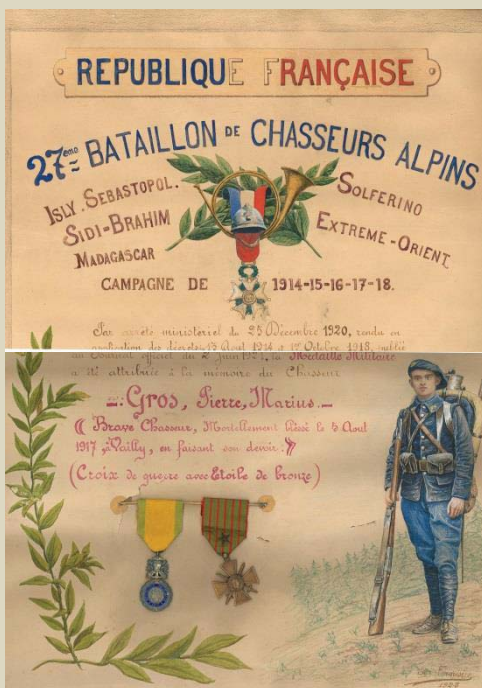 REPUBLIQUE FRANÇAISE
27ème BATAILLON DE CHASSEURS ALPINS
ISLY. SEBASTOPOL.
SIDI-BRAHIM
MADAGASCAR
SOLFERINO
EXTREME-ORIENT.
CAMPAGNE DE 1914-15-16-17-18.
Par arrêté ministériel du 25 Décembre 1920, rendu en
application des décrets, 13 Août 1914 et 1er Octobre 1918, publié
au Journal officiel du 2 Juin 1921, la Médaille Militaire
a été attribuée à la mémoire du Chasseur
Gros, Pierre, Marius.
« Brave Chasseur, Mortellement blessé le 5 Aout
1917 à Vailly, en faisant son devoir. »
(Croix de guerre avec Etoile de bronze)